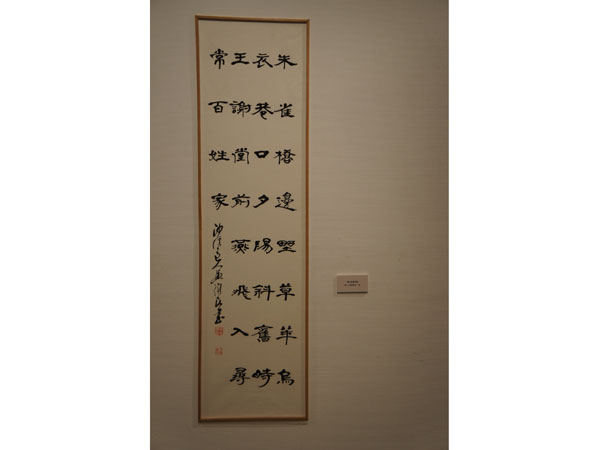 朱雀橋邊野草華烏
衣巷口夕陽斜舊時
王謝堂前燕飛入尋
常百姓家